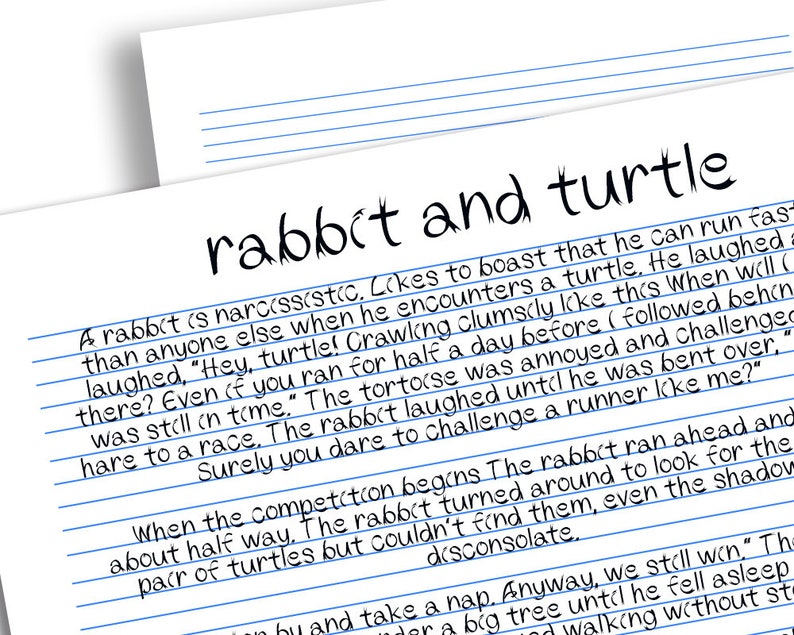 rabbit and turtle
A rabbit is narcissistic. Likes to boast that he can run fast
than anyone else when he encounters a turtle. He laughed a
laughed, "Hey, turtle! Crawling clumsily like this When will i
there? Even if you ran for half a day before i followed behin
was still in time." The tortoise was annoyed and challenged
hare to a race. The rabbit laughed until he was bent over, "
Surely you dare to challenge a runner like me?"
When the competition begins The rabbit ran ahead and
about half way. The rabbit turned around to look for the
pair of turtles but couldn't find them, even the shadow
disconsolate.
by and take a nap. Anyway, we still win." Th
a big tree until he fell asleep
walking without st